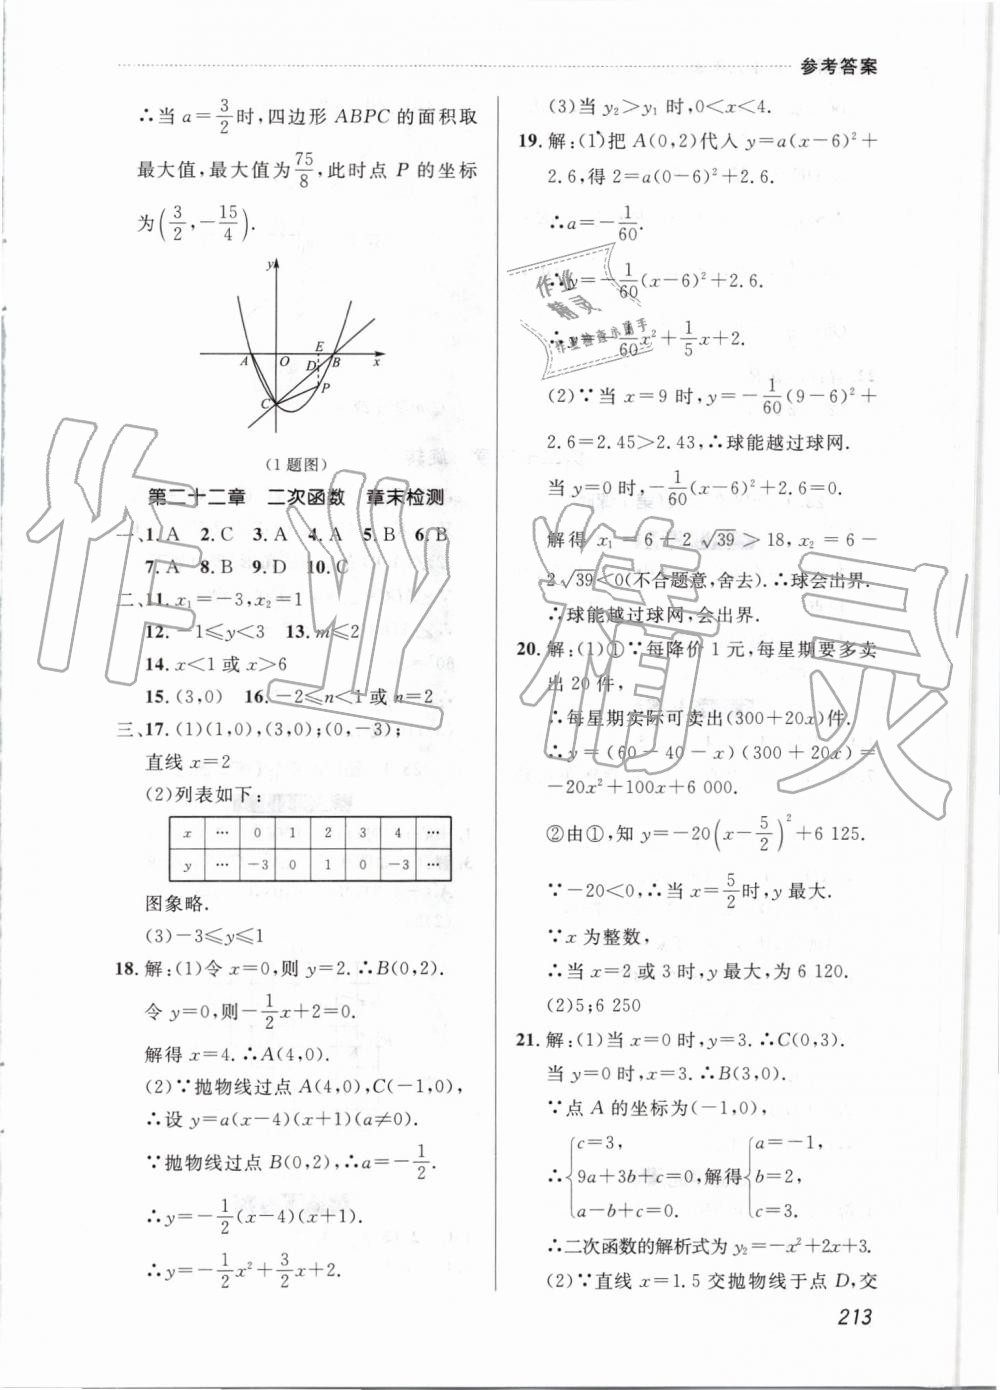 参考答案
∴当 a=3/2时,四边形 ABPC 的面积取
最大值,最大值为75/8,此时点 P 的坐标
为(3/2,-15/4).
y
A O E B x
D
P
C
(1题图)
第二十二章 二次函数 章末检测
一、1. A 2. C 3. A 4. A 5. B 6. B
7. A 8. B 9. D 10. C
二、11. x₁=-3,x₂=1
12. -1≤y<3 13. m≤2
14. x<1 或 x>6
15. (3,0) 16. -2≤n<1 或 n=2
三、17. (1)(1,0),(3,0);(0,-3);
直线 x=2
(2)列表如下:
x … 0 1 2 3 4 …
y … -3 0 1 0 -3 …
图象略.
(3)-3≤y≤1
18. 解:(1)令 x=0,则 y=2. ∴B(0,2).
令 y=0,则-1/2x+2=0.
解得 x=4. ∴A(4,0).
(2)∵抛物线过点 A(4,0),C(-1,0),
∴设 y=a(x-4)(x+1)(a≠0).
∵抛物线过点 B(0,2),∴a=-1/2.
∴y=-1/2(x-4)(x+1).
∴y=-1/2x²+3/2x+2.
(3)当 y₂>y₁ 时,0<x<4.
19. 解:(1)把 A(0,2)代入 y=a(x-6)²+
2.6,得 2=a(0-6)²+2.6.
∴a=-1/60.
∴y=-1/60(x-6)²+2.6.
∴y=-1/60x²+1/5x+2.
(2)∵当 x=9 时,y=-1/60(9-6)²+
2.6=2.45>2.43,∴球能越过球网.
当 y=0 时,-1/60(x-6)²+2.6=0.
解得 x₁=6+2√39>18,x₂=6-
2√39<0(不合题意,舍去).∴球会出界.
∴球能越过球网,会出界.
20. 解:(1)①∵每降价 1 元,每星期要多卖
出 20 件,
∴每星期实际可卖出(300+20x)件.
∴y=(60-40-x)(300+20x)=
-20x²+100x+6 000.
②由①,知 y=-20(x-5/2)²+6 125.
∵-20<0,∴当 x=5/2时,y 最大.
∵x 为整数,
∴当 x=2 或 3 时,y 最大,为 6 120.
(2)5;6 250
21. 解:(1)当 x=0 时,y=3. ∴C(0,3).
当 y=0 时,x=3. ∴B(3,0).
∵点 A 的坐标为(-1,0),
c=3, a=-1,
∴{9a+3b+c=0,解得{b=2,
a-b+c=0. c=3.
∴二次函数的解析式为 y₂=-x²+2x+3.
(2)∵直线 x=1.5 交抛物线于点 D,交
213
作业精灵
作业
精灵